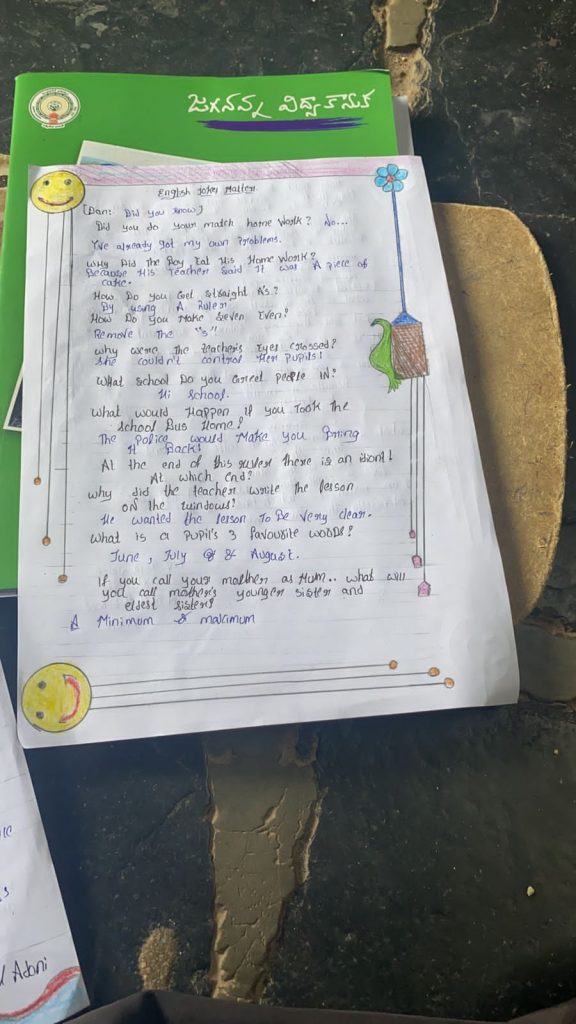 జగనన్న విద్యా కానుక
English Jokes Matter
[Dan: Did you know]
Did you do your match home work? No...
I've already got my own Problems.
Why Did The Boy Eat His Home Work?
Because His Teacher Said It was A piece of
cake.
How Do you Get Straight A's?
By using A Ruler
How Do you Make Seven Even?
Remove The "s"
why were The teacher's Eyes crossed?
She couldn't control Her Pupils!
What School Do you Greet people IN?
Hi School.
What would Happen if you Took the
School Bus Home?
The Police would Make you Bring
It Back!
At the end of this ruler there is an idiont!
At which End?
why did the teacher write the lesson
on the windows?
He wanted the lesson To Be very clear.
What is a Pupil's 3 favourite words?
June, July & August.
If you call your mother as Mum.. what will
you call mother's younger sister and
eldest sister?
A Minimum & maximum
Adoni